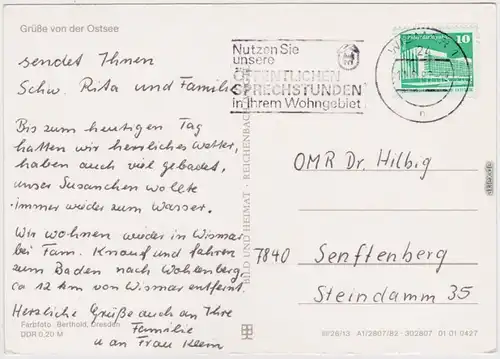 Grüße von der Ostsee
sendet Ihnen
Schw. Rita und Familie
Bis zum heutigen Tag
hatten wir herrliches Wetter,
haben auch viel gebadet,
unser Susanchen wollte
immer wieder zum Wasser.
Wir wohnen wieder in Wismar
bei Fam. Knauf und fahren
zum Baden nach Wohlenberg,
ca 12 km von Wismar entfernt.
Herzliche Grüße auch an Ihre
Familie
u an Frau Klem
Farbfoto: Berthold, Dresden
DDR 0,20 M
BILD UND HEIMAT · REICHENBACH
Nutzen Sie
unsere
ÖFFENTLICHEN
SPRECHSTUNDEN
in Ihrem Wohngebiet
10
OMR Dr. Hilbig
7840 Senftenberg
Steindamm 35
A1/2807/82 302807 01 01 0427